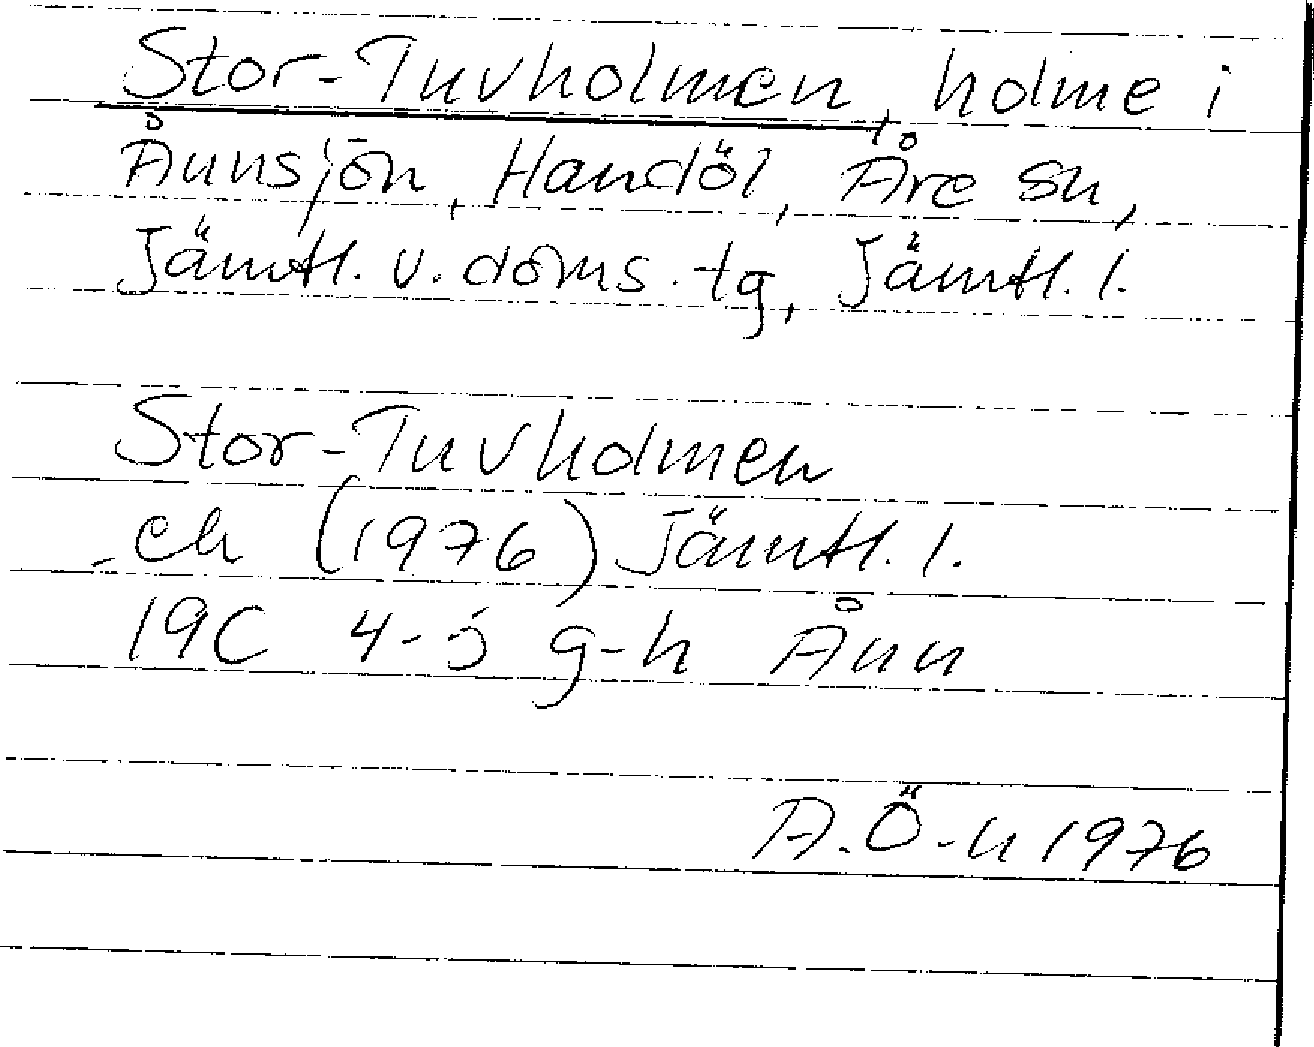 Stor-Tuvholmen, holme i
Ånnsjön, Handöl, Åre sn,
Jämtl. v. doms. tg, Jämtl. l.
Stor-Tuvholmen
ek (1976) Jämtl. l.
19C 4-5 g-h Ånn
A.Ö-n 1976